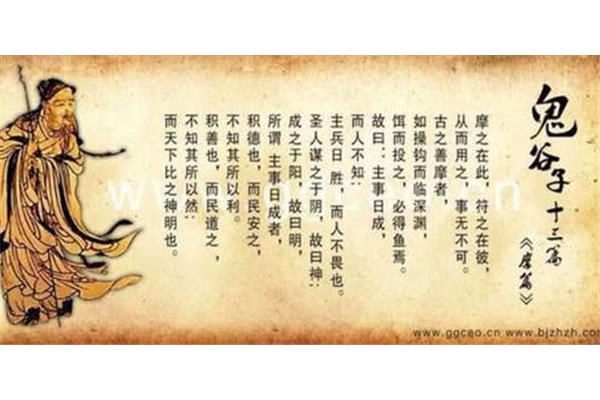 鬼谷子 十三篇
《摩篇》
摩之在此，符之在彼，
从而用之，事无不可。
古之善摩者，
如操钩而临深渊，
饵而投之，必得鱼焉。
故曰：主事日成，
而人不知；
主兵日 胜，而人不畏也。
圣人谋之于阴，故曰神；
成之于阳，故曰明，
所谓 主事日成者，
积德也，而民安之，
不知其所以利。
积善也，而民道之，
不知其所以然；
而天下比之神明也。
www.ggceo.cn www.bjzhzh.com